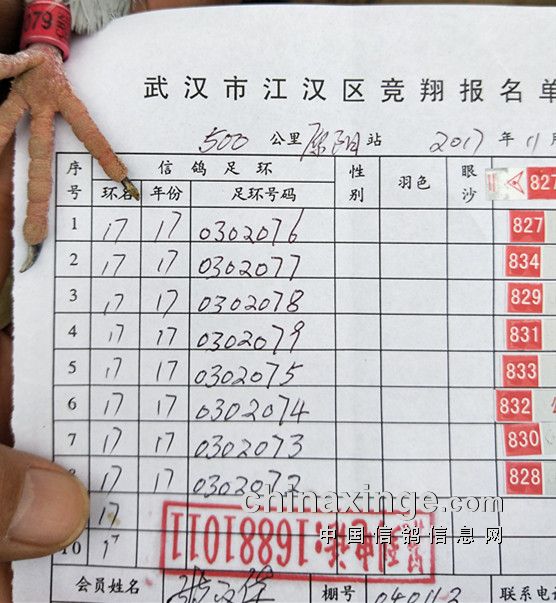 079
武汉市江汉区竞翔报名单
500 公里 原阳 站 2017 年 11 月
序号 信鸽足环 性别 羽色 眼沙 827
环名 年份 足环号码
1 17 17 0302076 827
2 17 17 0302077 834
3 17 17 0302078 829
4 17 17 0302079 831
5 17 17 0302075 833
6 17 17 0302074 832
7 17 17 0302073 830
8 17 17 0302072 828
17
10 17
16881011
chinaxinge.com
中国信鸽信息网
会员姓名 棚号 040112 联系电